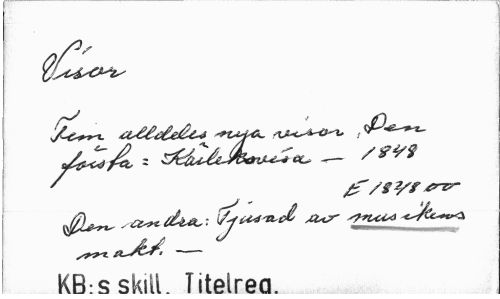 Visor
Fem alldeles nya visor, Den
första = Kärleksvisa — 1848
E 1848 oo
Den andra: Tjusad av musikens
makt. —
KB:s skill. Titelreg.